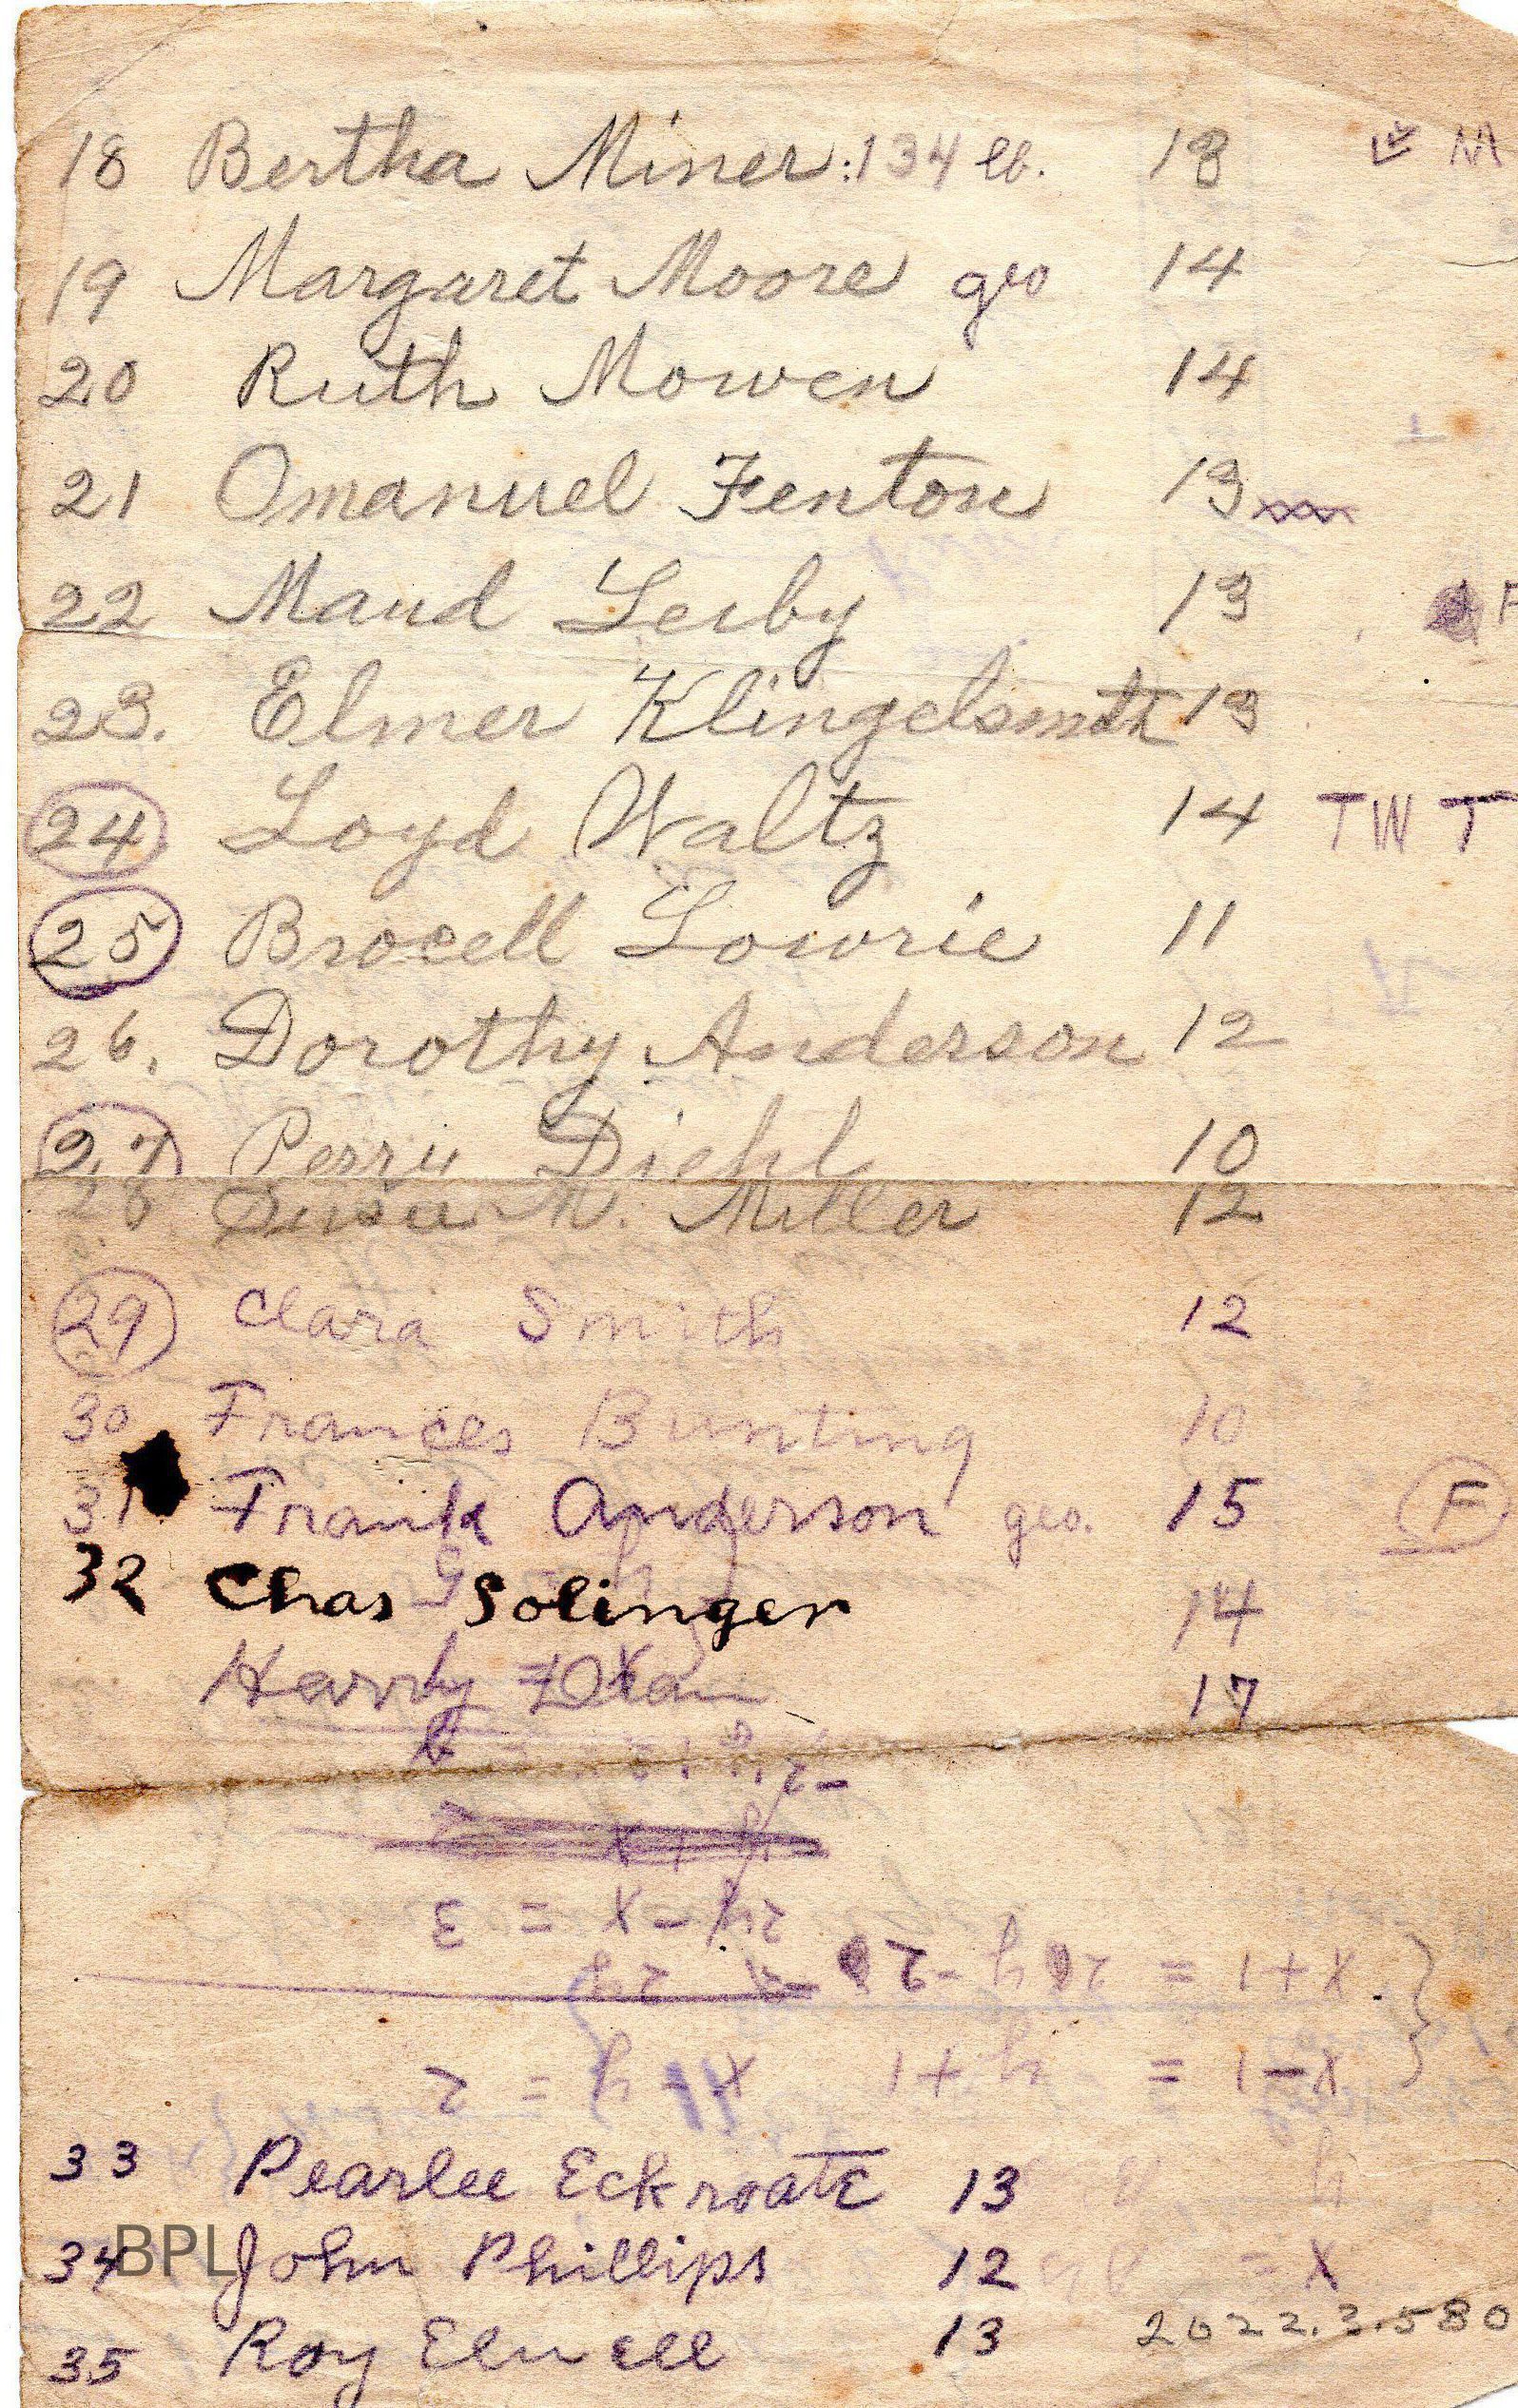 18 Bertha Miner: 134 lb. 13 M
19 Margaret Moore geo 14
20 Ruth Mowen 14
21 Omanuel Fenton 13
22 Maud Lerby 13 F
23. Elmer Klingelsmith 13
24 Loyd Waltz 14 T W T
25 Brocell Lowrie 11
26. Dorothy Anderson 12
27 Perry Diehl 10
28 M. Miller 12
29 Clara Smith 12
30 Frances Bunting 10
31 Frank Anderson geo. 15 F
32 Chas Solinger 14
Harry 17
2y - x = 3
x + 1 = 2y - 2
x - 1 = y + 1
x - y = 2
33 Pearlee Eckroate 13
34 John Phillips 12
x =
BPL
35 Roy Elwell 13 2022.3.580